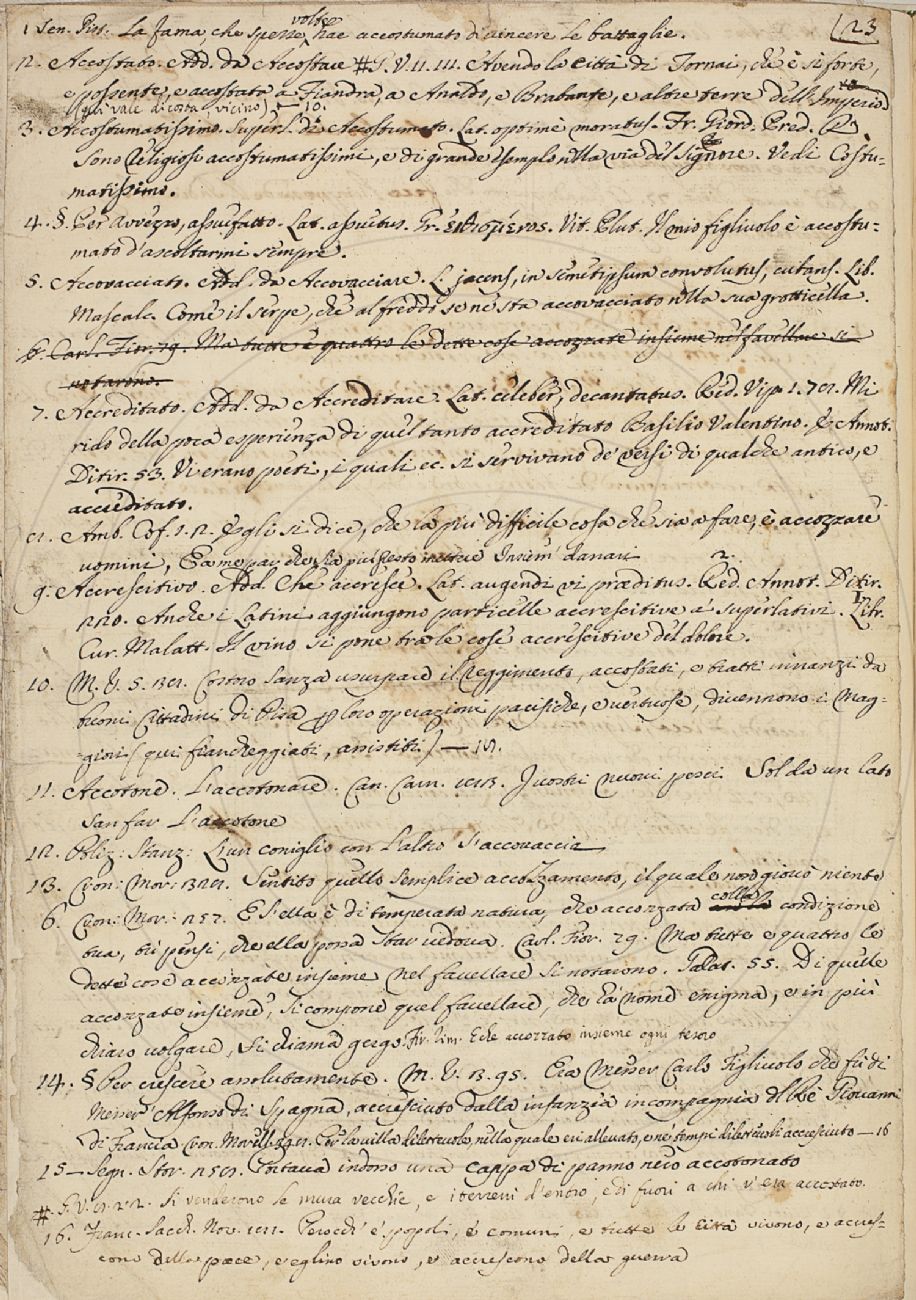 23
1 Sen. Pist. La fama, che spesse volte hae accostumato di vincere le battaglie.
2. Accostato. Add. da Accostare # G. V. 11. 111. Avendo la Città di Tornai, che è sì forte,
e possente, e accostata a Fiandra, a Analdo, e Brabante, e altre terre dell'Imperio
(qui vale di costa, vicino) — 10.
3. Accostumatissimo. Superl. di Accostumato. Lat. optimè moratus. Fr. Giord. Pred. R
Sono religiosi accostumatissimi, e di grande esemplo nella via del Signore. Vedi Costu=
matissimo.
4. §. Per Avvezzo, assuefatto. Lat. assuetus. Gr. Vit. Plut. Il mio figliuolo è accostu=
mato d'ascoltarmi sempre.
5. Accovacciato. Add. da Accovacciare. L. jacens, in semetipsum convolutus, cubans. Lib.
Mascalc. Come il serpe, che al freddo se ne sta accovacciato nella sua grotticella.
6. Carl. Fior. 29. Ma tutte e quattro le dette cose accozzate insieme nel favellare si
notarono.
7. Accreditato. Add. da Accreditare. Lat. celeber, decantatus. Red. Vip. 1. 72. Mi
rido della poca esperienza di quel tanto accreditato Basilio Valentino. E Annot.
Ditir. 53. Vi erano poeti, i quali ec. si servivano de' versi di qualche antico, e
accreditato.
8. Amb. Cof. 1. 2. Egli si dice, che la più difficile cosa che sia a fare, è accozzare
uomini, E a me par che sia più mettere Insiem' danari
9. Accrescitivo. Add. Che accresce. Lat. augendi vi præditus. Red. Annot. Ditir.
220. Anche i Latini aggiungono particelle accrescitive a' superlativi. Libr.
Cur. Malatt. Il vino si pone tra le cose accrescitive del dolore.
10. M. V. 5. Costoro sanza usurpare il reggimento, accostati, e tratti innanzi da
buoni Cittadini di Pisa per loro operazioni pacifiche, e vertuose, divennono i mag=
giori (qui fiancheggiati, assistiti) — 15.
11. Accotone. L'accotonare. Can. Carn. I vostri nuovi pesci Sol da un lato
san far L'accotone
12. Poliz: Stanz: L'un coniglio con l'altro s'accovaccia
13. Cron: Mor: Sentito quello semplice accozzamento, il quale non giovò niente
6. Cron: Mor: 257. E s'ella è di temperata natura, che accozzata colla condizione
tua, tu pensi, che ella possa star vedova. Carl. Fior. 29. Ma tutte e quattro le
dette cose accozzate insieme nel favellare si notarono. Salat. 55. Di quelle
accozzate insieme, si compone quel favellare, che ha nome enigma, e in più
chiaro volgare, si chiama gergo. Fir. rim. E che accozzato insieme ogni tesoro
14. § Per crescere assolutamente. M. V. 3. 95. Era Messer Carlo Figliuolo che fu di
Messer Alfonso di Spagna, accresciuto dalla infanzia in compagnia del Rè Giovanni
di Francia Cron. Morell. Per la villa dilettevole, nella quale eri allevato, e ne' tempi dilettevoli accresciuto — 16
15 — Segn. Stor. Portava indosso una cappa di panno nero accotonato
# G. V. Si venderono le mura vecchie, e i terreni d'entro, e di fuori a chi v'era accostato.
16. Franc. Sacch. Nov. Perocchè è popoli, è comuni, e tutte le Città vivono, e accres=
cono della pace, e eglino vivono, e accrescono della guerra